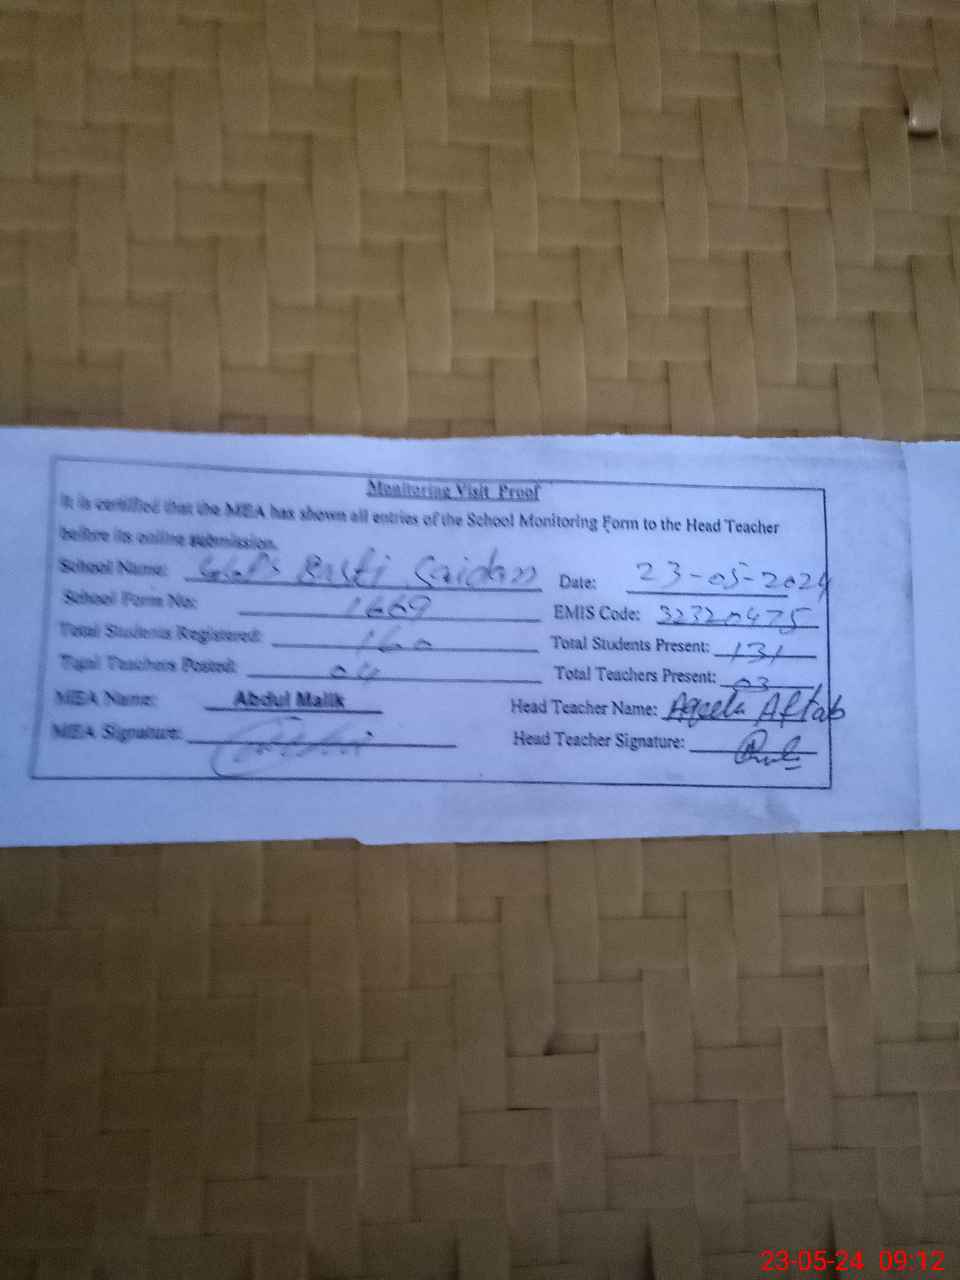 Monitoring Visit Proof
It is certified that the MEA has shown all entries of the School Monitoring Form to the Head Teacher
before its online submission.
School Name: Basti Saidan Date: 23-05-2024
School Form No: 1669 EMIS Code: 32320475
Total Students Registered: 160 Total Students Present: 131
Total Teachers Posted: 04 Total Teachers Present: 03
MEA Name: Abdul Malik Head Teacher Name: Aqeela Aftab
MEA Signature: Head Teacher Signature:
23-05-24 09:12